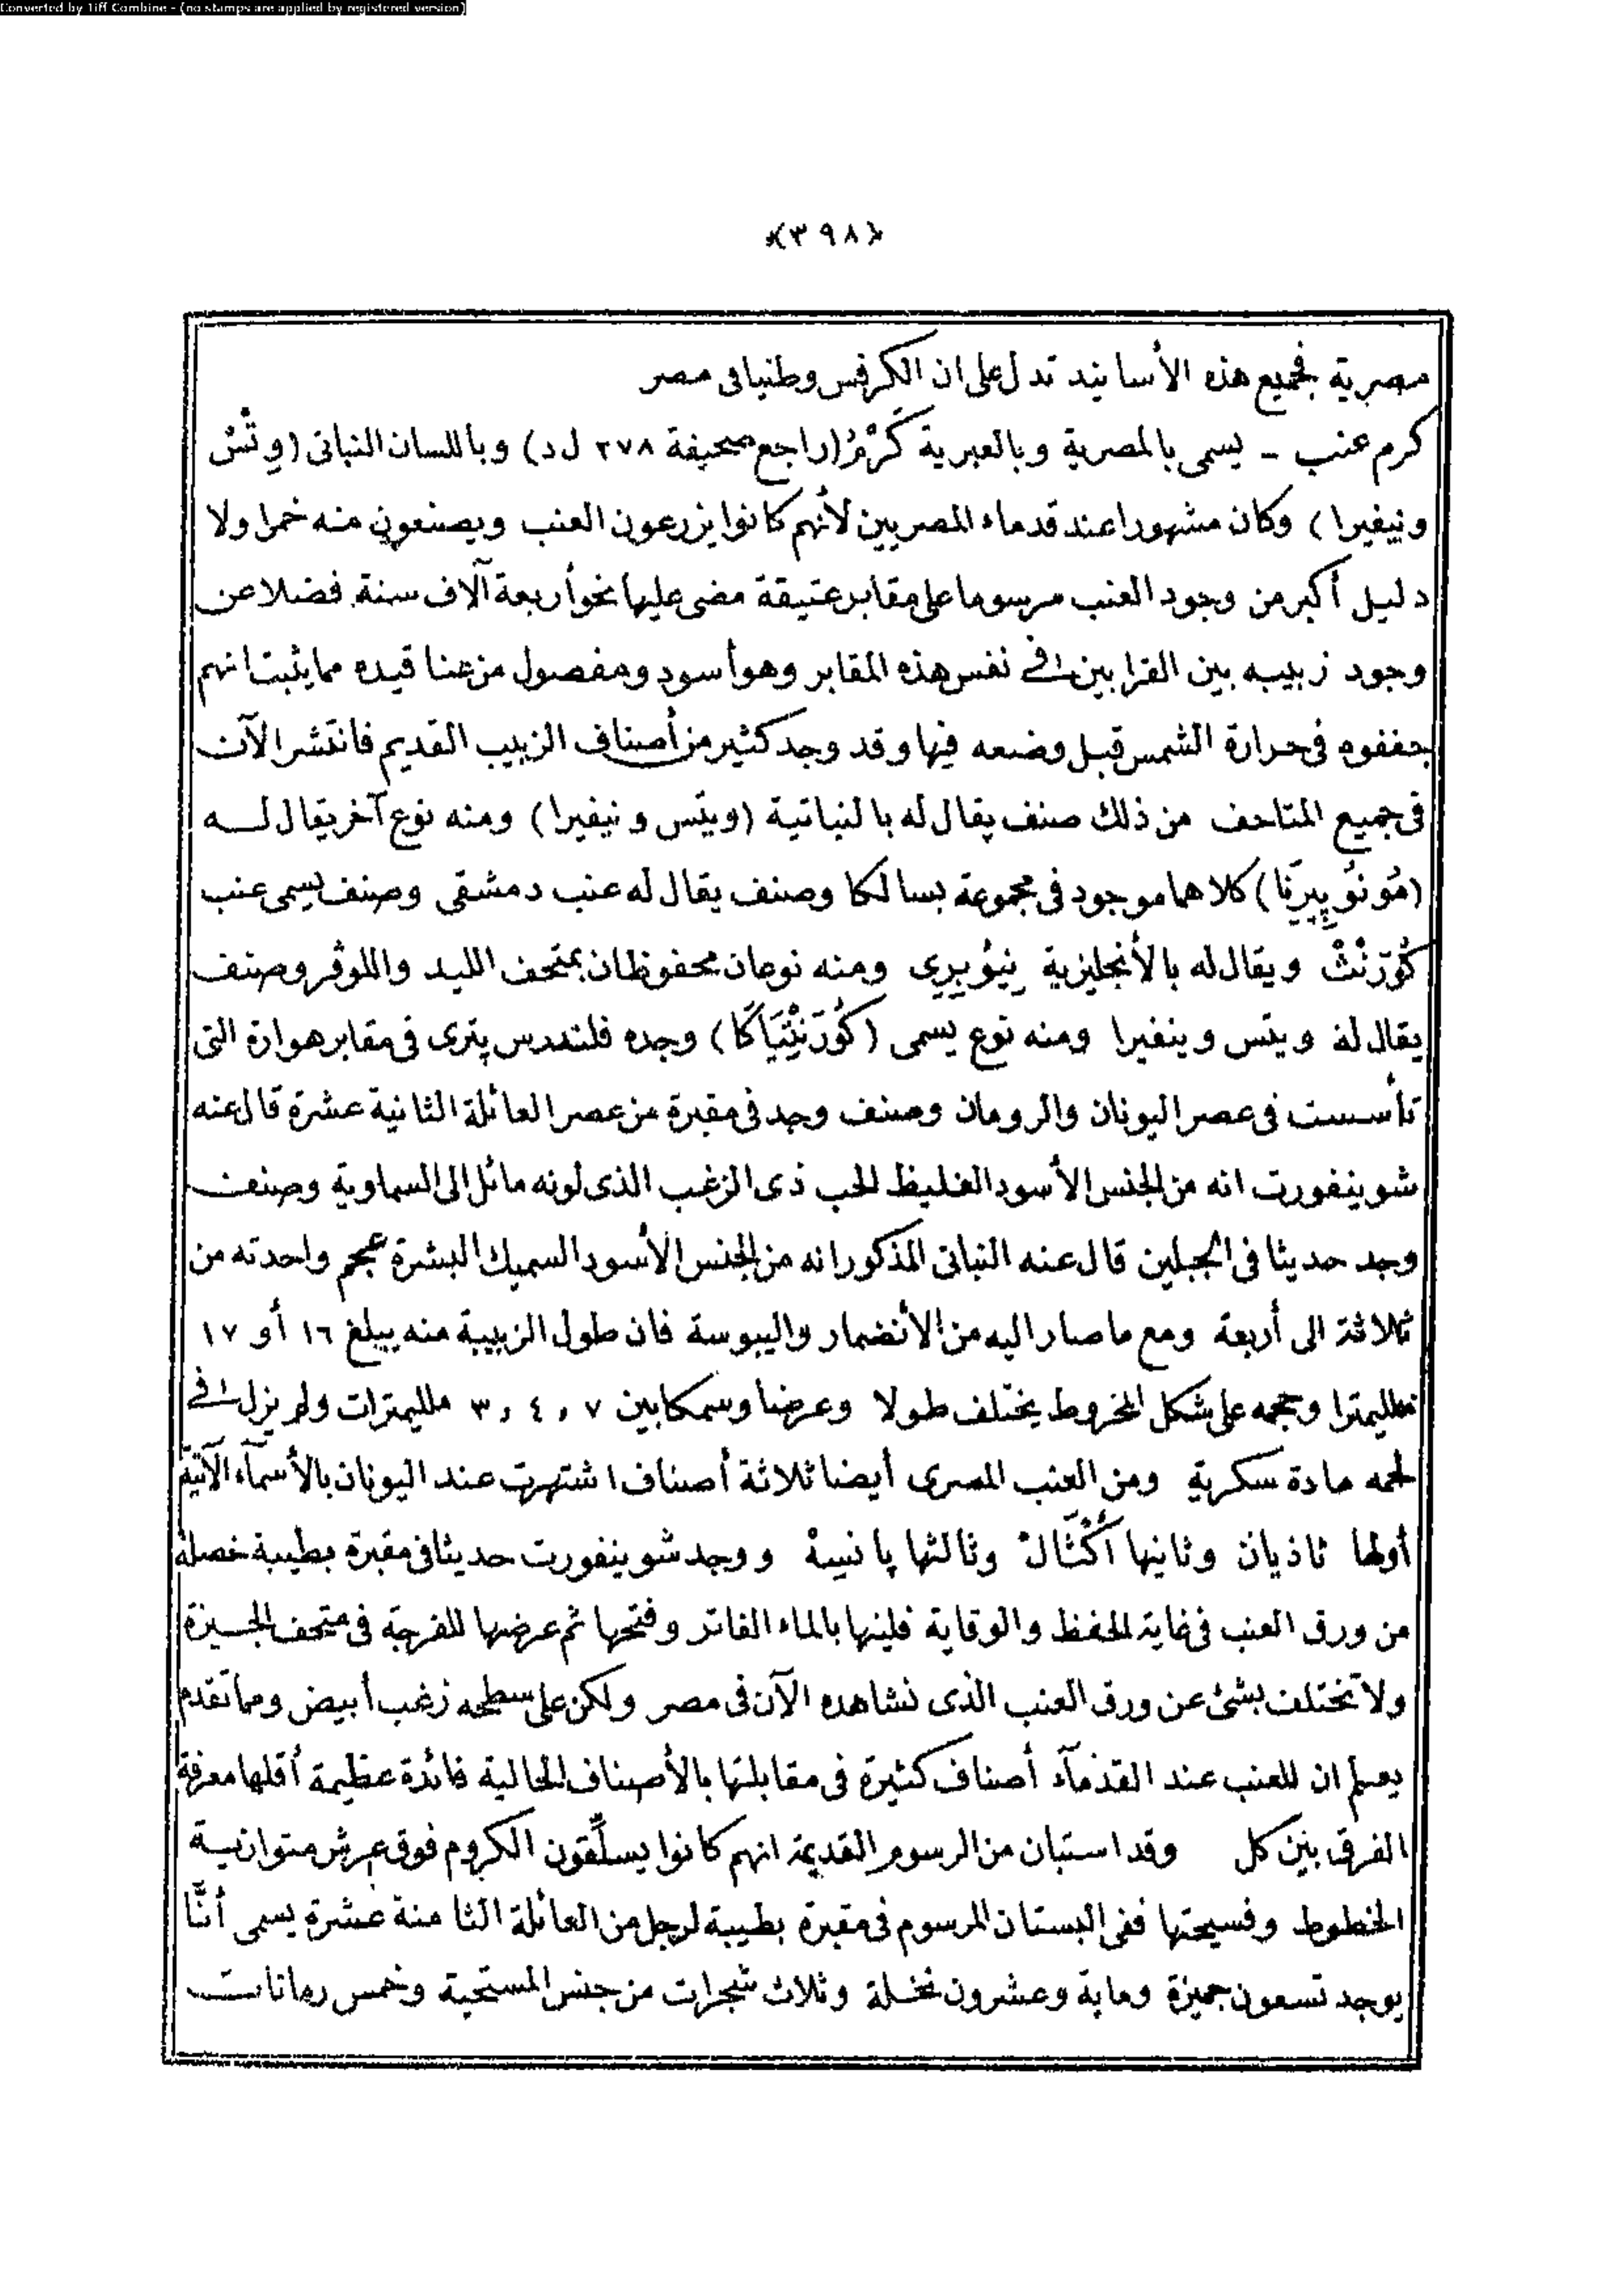 Converted by Tiff Combine - (no stamps are applied by registered version)
﴿٣٩٨﴾
مصرية فجميع هذه الأسانيد تدل على ان الكرفس وطنيا فى مصر
كرم عنب - يسمى بالمصرية وبالعبرية كَرْمُ (راجع صحيفة ٢٧٨ ل د) وباللسان النباتى (وِتْسْ
ونيفيرا) وكان مشهورا عند قدماء المصريين لأنهم كانوا يزرعون العنب ويصنعون منه خمرا ولا
دليل أكبر من وجود العنب مرسوما على مقابر عتيقة مضى عليها نحو أربعة آلاف سنة فضلا عن
وجود زبيبه بين القرابين فى نفس هذه المقابر وهو أسود ومفصول من عناقيده مما يثبت انهم
جففوه فى حرارة الشمس قبل وضعه فيها وقد وجد كثير من أصناف الزبيب القديم فانتشر الآن
فى جميع المتاحف من ذلك صنف يقال له بالنباتية (ويتس ونيفيرا) ومنه نوع آخر يقال له
(مُونوُپيرنا) كلاهما موجود فى مجموعة بسالكا وصنف يقال له عنب دمشقى وصنف يسمى عنب
كُورَنْثْ ويقال له بالأنجليزية نيوُبرى ومنه نوعان محفوظان بمتحف الليد واللوڤر وصنف
يقال له ويتس وينفيرا ومنه نوع يسمى (كُورَنْثِيَاكَا) وجده فلندرس پترى فى مقابر هوارة التى
تأسست فى عصر اليونان والرومان وصنف وجد فى مقبرة من عصر العائلة الثانية عشرة قال عنه
شوينفورت انه من الجنس الأسود الغليظ الحب ذى الزغب الذى لونه مائل الى السماوية وصنف
وجد حديثا فى الجبلين قال عنه النباتى المذكور انه من الجنس الأسود السميك البشرة عجم واحدته من
ثلاثة الى أربعة ومع ما صار اليه من الأنضمار واليبوسة فان طول الزبيبة منه يبلغ ١٦ أو ١٧
ملليمترا وحجمه على شكل المخروط يختلف طولا وعرضا وسمكا بين ٧ ، ٤ ، ٣ ملليمترات ولم يزل فى
لحمه مادة سكرية ومن العنب المصرى أيضا ثلاثة أصناف اشتهرت عند اليونان بالأسمآء الآتية
أولها ثاذيان وثانيها أكْثَال وثالثها پانسية ووجد شوينفورت حديثا فى مقبرة بطيبة خصلة
من ورق العنب فى غاية الحفظ والوقاية فلينها بالماء الفاتر وفتحها ثم عرضها للفرجة فى متحف الجيزة
ولا تختلف بشئ عن ورق العنب الذى نشاهده الآن فى مصر ولكن على سطحه زغب أبيض ومما تقدم
يعلم ان للعنب عند القدمآء أصناف كثيرة فى مقابلتها بالأصناف الحالية فائدة عظيمة أقلها معرفة
الفرق بين كل وقد استبان من الرسوم القديمة انهم كانوا يسلّقون الكروم فوق عرش متوازية
الخطوط وفسيحتها ففى البستان المرسوم فى مقبرة بطيبة لرجل من العائلة الثامنة عشرة يسمى أنَّا
يوجد تسعون جميزة وماية وعشرون نخلة وثلاث شجرات من جنس المستحية وخمس رمانات